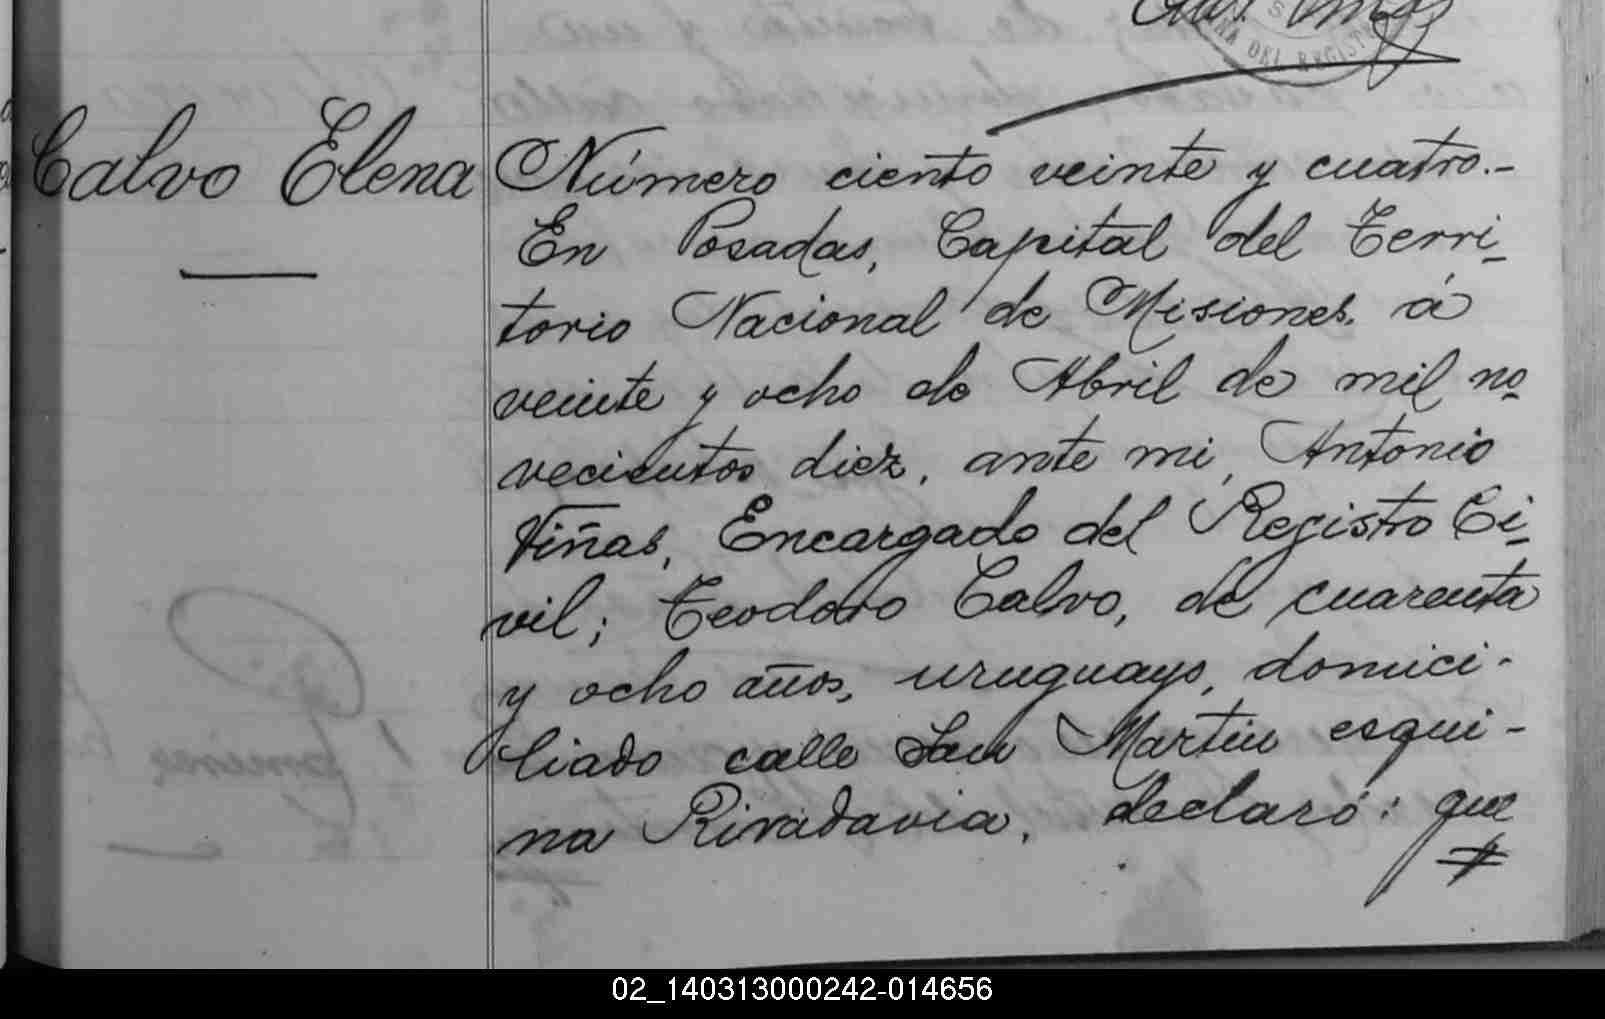 Calvo Elena
Número ciento veinte y cuatro.-
En Posadas, Capital del Terri-
torio Nacional de Misiones, á
veinte y ocho de Abril de mil no-
vecientos diez, ante mi, Antonio
Viñas, Encargado del Registro Ci-
vil; Teodoro Calvo, de cuarenta
y ocho años, uruguayo, domici-
liado calle San Martin esqui-
na Rivadavia, declaró: que
02_140313000242-014656